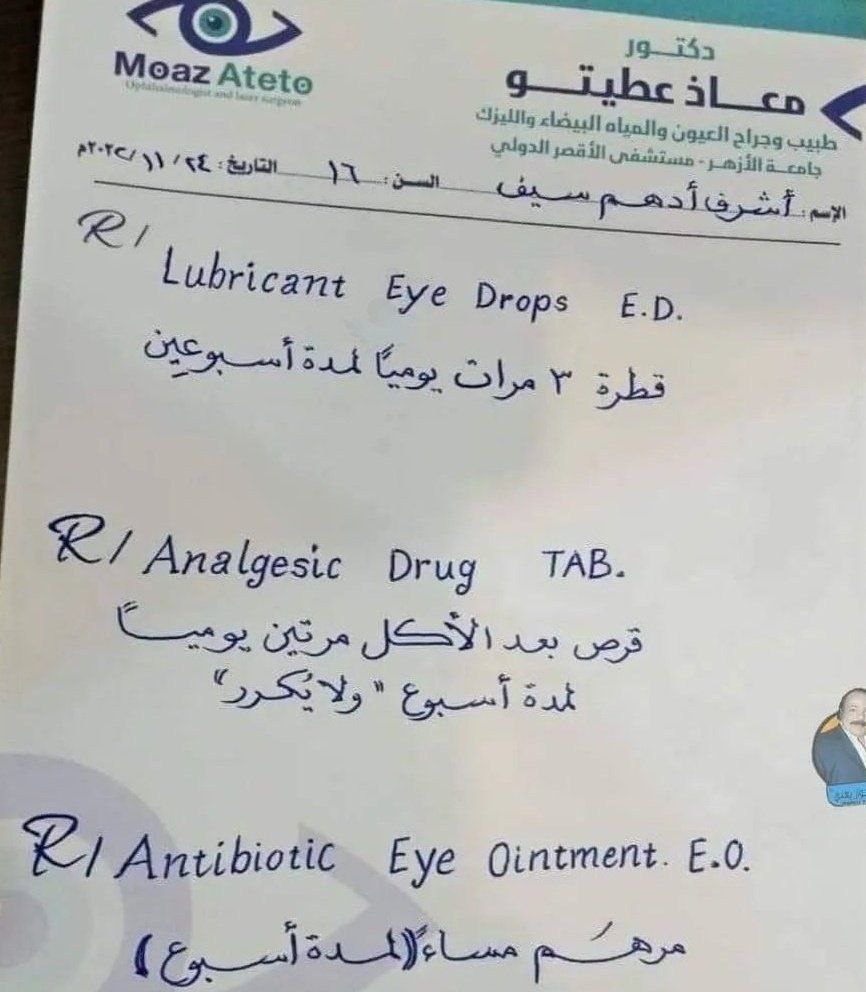 Moaz Ateto
Ophthalmologist and laser surgeon
دكتـــور
معـــاذ عطيتـــو
طبيب وجراح العيون والمياه البيضاء والليزك
جامعــة الأزهــر - مستشفى الأقصر الدولي
الإسم: أشرف أدهم سيف السن: ١٦ التاريخ: ٢٤/١١/٢٠٢٢م
R/ Lubricant Eye Drops E.D.
قطرة ٣ مرات يومياً لمدة أسبوعين
R/ Analgesic Drug TAB.
قرص بعد الأكل مرتين يوميــاً
لمدة أسبوع "ولا يُكرر"
R/ Antibiotic Eye Ointment. E.O.
مرهَم مساءً (لمدة أسبوع)